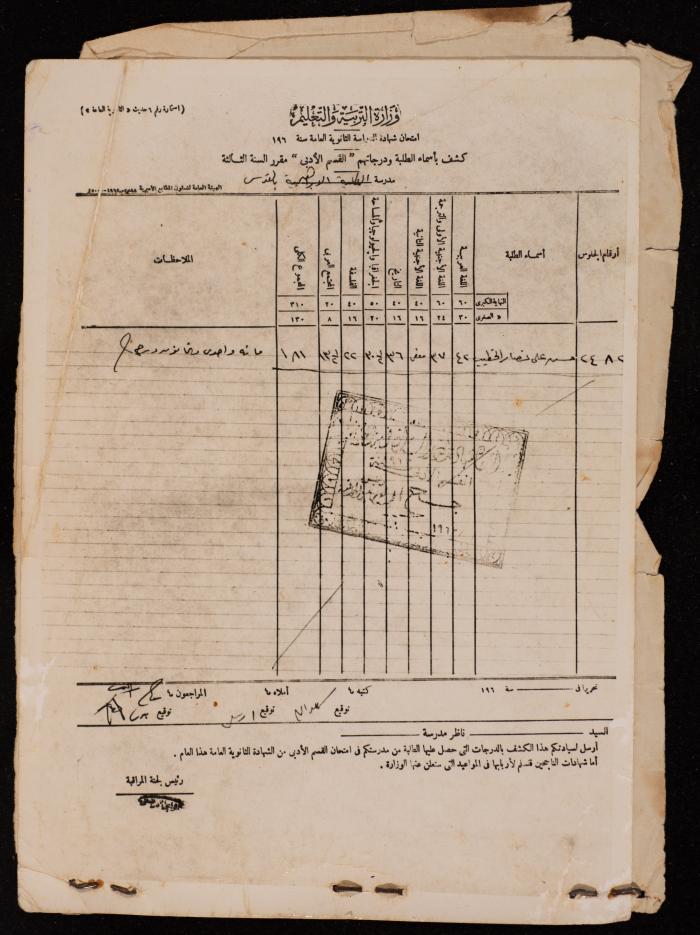 (استمارة رقم ٦ حديث « الثانوية العامة »)
وزارة التربية والتعليم
امتحان شهادة الدراسة الثانوية العامة سنة ١٩٦
كشف بأسماء الطلبة ودرجاتهم " القسم الأدبى " مقرر السنة الثالثة
مدرسة الكلية الابراهيمية بالقدس
الهيئة العامة لشئون المطابع الأميرية
أرقام الجلوس
أسمـاء الطلبة
اللغة العربية
اللغة الأجنبية الأولى والترجمة
اللغة الأجنبية الثانية
التاريخ
الجغرافيا والجيولوجيا والمساحة
الفلسفة
المجتمع العربى
المجموع الكلى
الملاحظات
النهاية الكبرى ٦٠ ٦٠ ٤٠ ٤٠ ٥٠ ٤٠ ٢٠ ٣١٠
» الصغرى ٣٠ ٢٤ ١٦ ١٦ ٢٠ ١٦ ٨ ١٣٠
٢٤٨٢ على نصار الخطيب ٤٢ ٣٧ معفى ٣٦ ٣٠ ٢٢ ١٣ ١٨١ مائه واحدى وثمانون درجه
١٩٦
تحريرا فى سنة ١٩٦
كتبه ما
أملاه ما
المراجعون ما
توقيع
توقيع
توقيع
السيد ناظر مدرسة
أرسل لسيادتكم هذا الكشف بالدرجات التى حصل عليها الطلبة من مدرستكم فى امتحان القسم الأدبى من الشهادة الثانوية العامة هذا العام .
أما شهادات الناجحين فتسلم لأربابها فى المواعيد التى ستعلن عنها الوزارة .
رئيس لجنة المراقبة